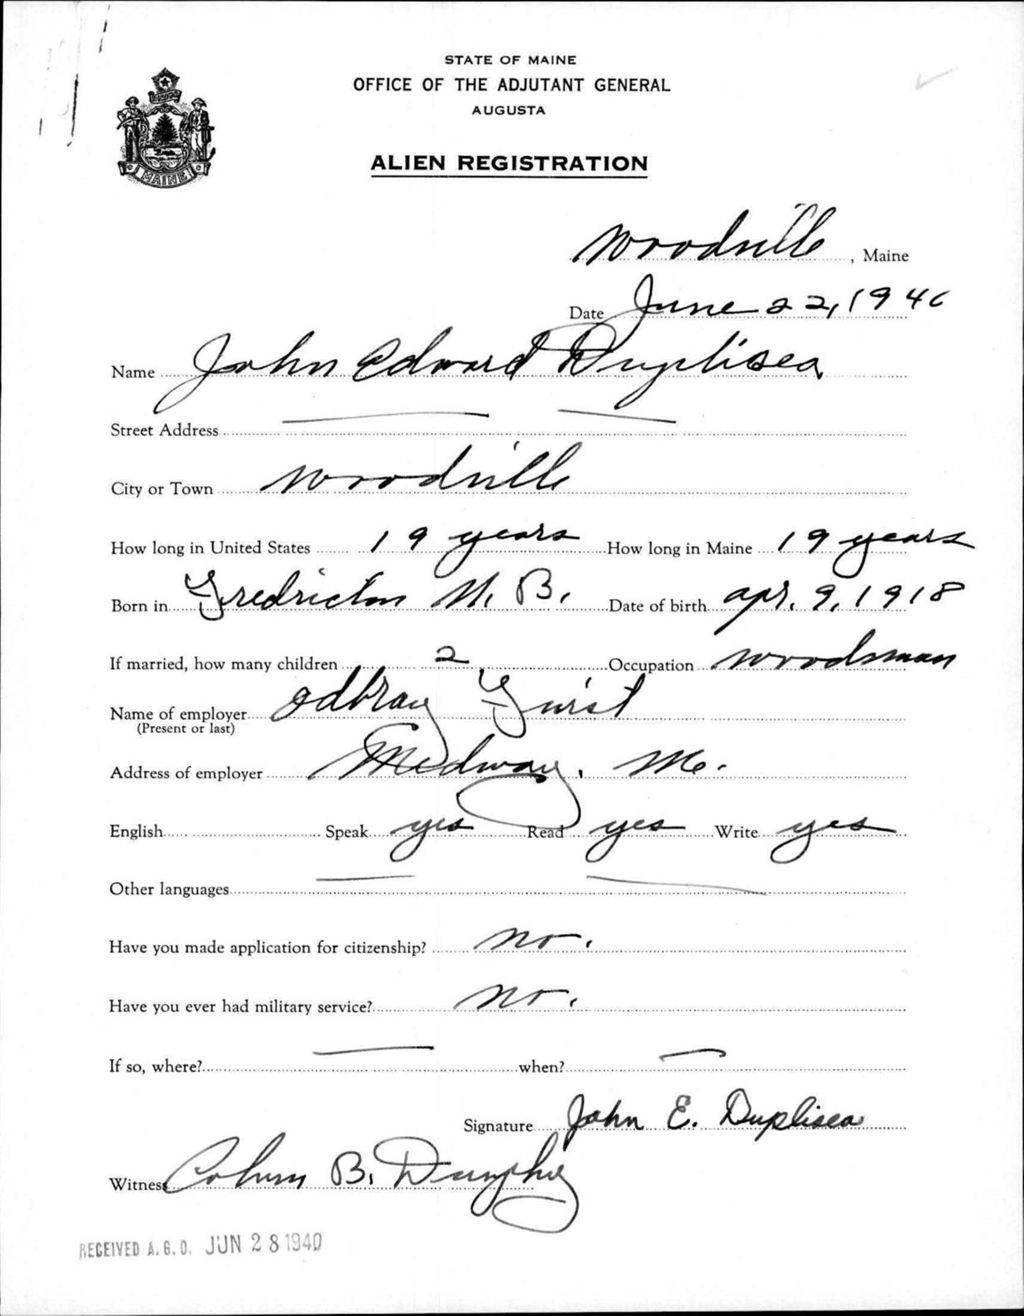 STATE OF MAINE
OFFICE OF THE ADJUTANT GENERAL
AUGUSTA
ALIEN REGISTRATION
MAINE
Woodville, Maine
Date June 22, 1940
Name John Edward Duplisea
Street Address
City or Town Woodville
How long in United States 19 years How long in Maine 19 years
Born in Fredricton N. B. Date of birth apr. 9, 1918
If married, how many children 2 Occupation Woodsman
Name of employer
(Present or last)
Address of employer Medway, Me.
English Speak yes Read yes Write yes
Other languages
Have you made application for citizenship? no.
Have you ever had military service? no.
If so, where? when?
Signature John E. Duplisea
Witness B. Dunphy
RECEIVED A. G. O. JUN 28 1940